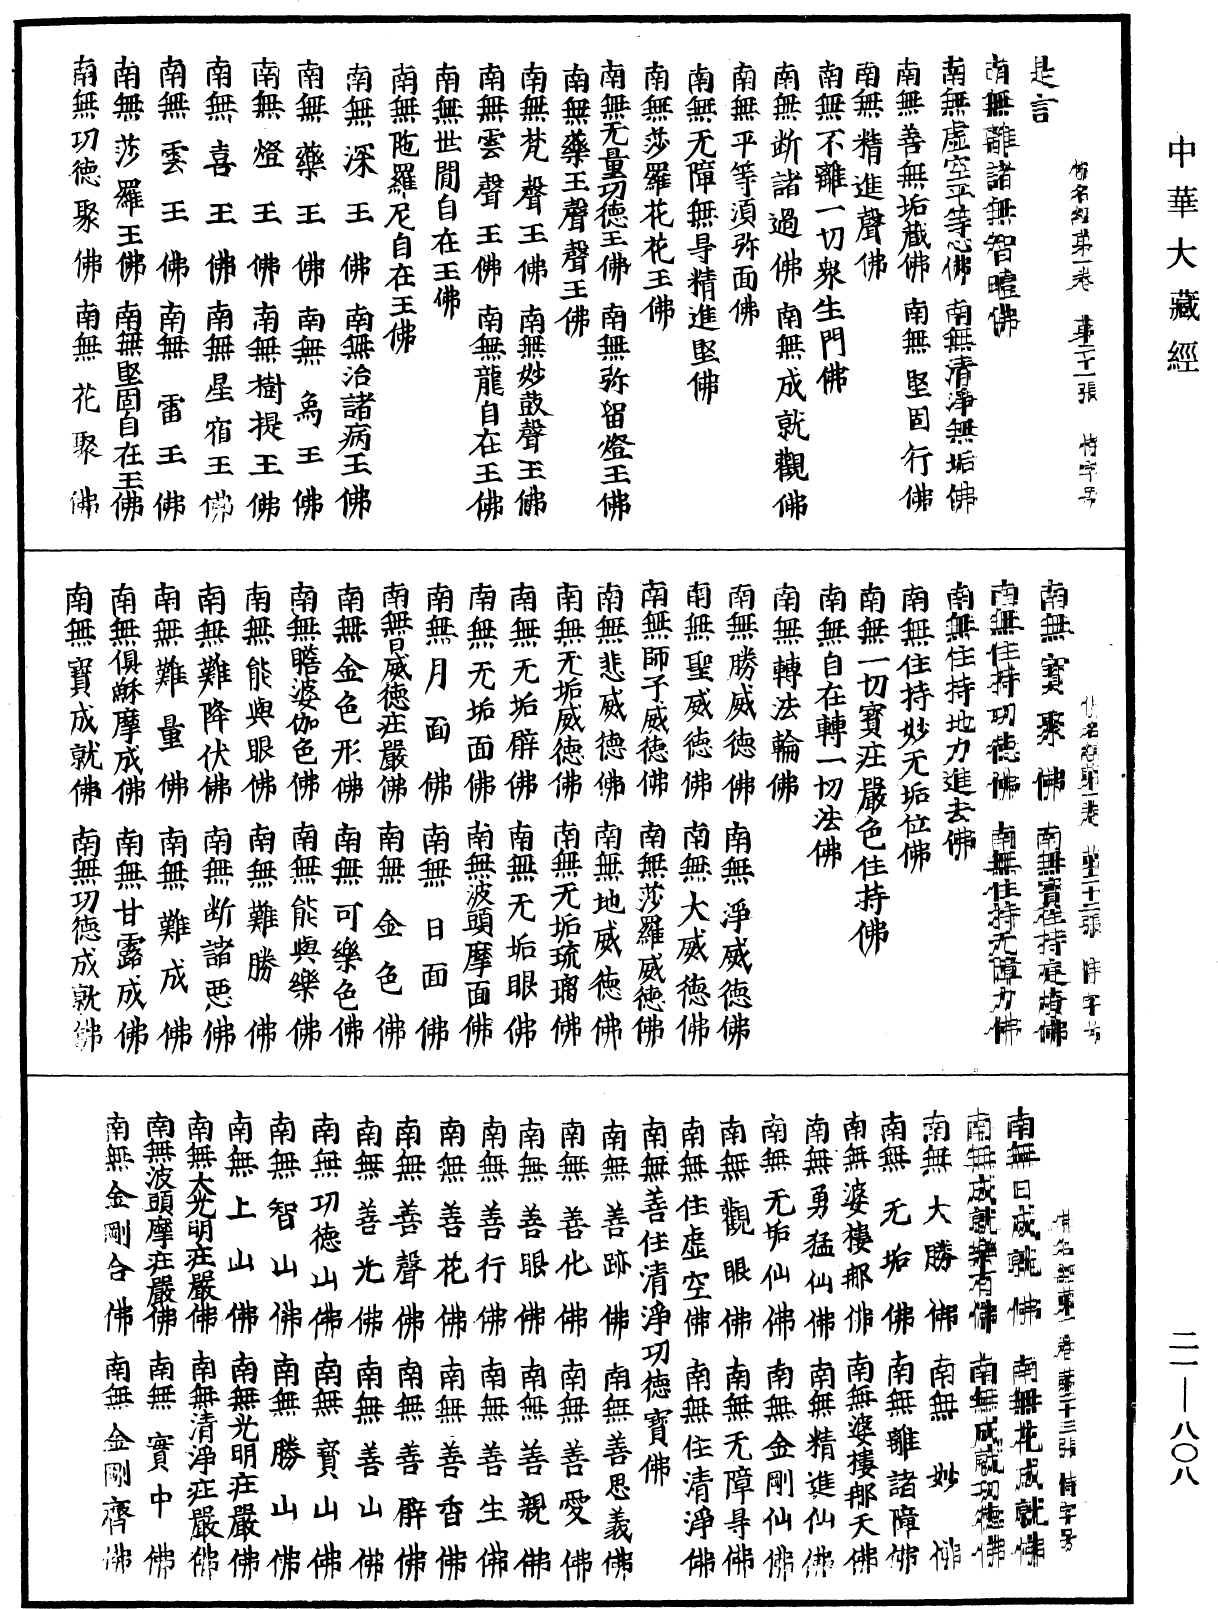 中華大藏經
二一—八〇八
佛名經第一卷　第二十一張　恃字号
是言
南無離諸無智曀佛
南無虛空平等心佛　南無清淨無垢佛
南無善無垢藏佛　南無堅固行佛
南無精進聲佛
南無不離一切衆生門佛
南無断諸過佛　南無成就觀佛
南無平等湏弥面佛
南無无障無导精進堅佛
南無莎羅花花王佛
南無无量功德王佛　南無弥留燈王佛
南無藥王聲聲王佛
南無梵聲王佛　南無妙鼓聲王佛
南無雲聲王佛　南無龍自在王佛
南無世間自在王佛
南無陁羅尼自在王佛
南無深王佛　南無治諸病王佛
南無藥王佛　南無爲王佛
南無燈王佛　南無樹提王佛
南無喜王佛　南無星宿王佛
南無雲王佛　南無雷王佛
南無莎羅王佛　南無堅固自在王佛
南無功德聚佛　南無花聚佛
佛名經第一卷　第二十二張　恃字号
南無寶聚佛　南無寶住持庭燎佛
南無住持功德佛　南無住持无障力佛
南無住持地力進去佛
南無住持妙无垢位佛
南無一切寶莊嚴色住持佛
南無自在轉一切法佛
南無轉法輪佛
南無勝威德佛　南無淨威德佛
南無聖威德佛　南無大威德佛
南無師子威德佛　南無莎羅威德佛
南無悲威德佛　南無地威德佛
南無无垢威德佛　南無无垢琉璃佛
南無无垢臂佛　南無无垢眼佛
南無无垢面佛　南無波頭摩面佛
南無月面佛　南無日面佛
南無日威德莊嚴佛　南無金色佛
南無金色形佛　南無可樂色佛
南無瞻婆伽色佛　南無能與樂佛
南無能與眼佛　南無難勝佛
南無難降伏佛　南無断諸惡佛
南無難量佛　南無難成佛
南無俱穌摩成佛　南無甘露成佛
南無寶成就佛　南無功德成就佛
佛名經第一卷　第二十三張　恃字号
南無日成就佛　南無花成就佛
南無成就樂有佛　南無成就功德佛
南無大勝佛　南無妙佛
南無无垢佛　南無離諸障佛
南無婆樓那佛　南無婆樓那天佛
南無勇猛仙佛　南無精進仙佛
南無无垢仙佛　南無金剛仙佛
南無觀眼佛　南無无障导佛
南無住虛空佛　南無住清淨佛
南無善住清淨功德寶佛
南無善跡佛　南無善思義佛
南無善化佛　南無善愛佛
南無善眼佛　南無善親佛
南無善行佛　南無善生佛
南無善花佛　南無善香佛
南無善聲佛　南無善臂佛
南無善光佛　南無善山佛
南無功德山佛　南無寶山佛
南無智山佛　南無勝山佛
南無上山佛　南無光明莊嚴佛
南無大光明莊嚴佛　南無清淨莊嚴佛
南無波頭摩莊嚴佛　南無寶中佛
南無金剛合佛　南無金剛齊佛